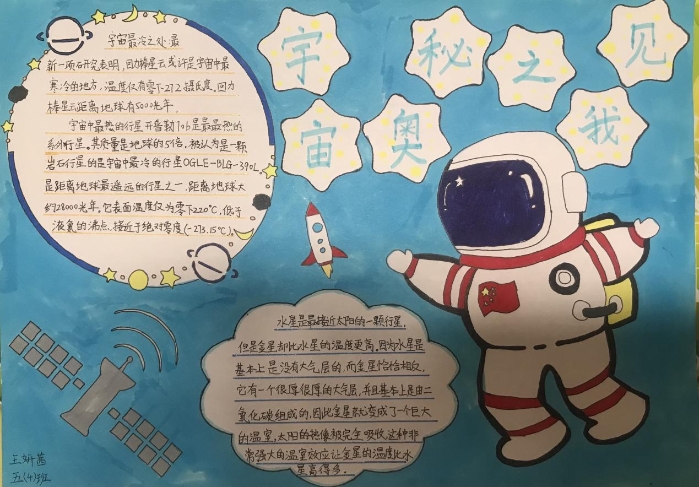 宇宙
秘奥
之
我见
宇宙最冷之处·最
新一项研究表明,回力棒星云或许是宇宙中最
寒冷的地方,温度仅有零下272摄氏度。回力
棒星云距离地球有5000光年。
宇宙中最热的行星开普勒70b是最最热的
系外行星。其质量是地球的5倍,被认为是一颗
岩石行星的是宇宙中最冷的行星OGLE-BLG-390L
是距离地球最遥远的行星之一,距离地球大
约28000光年。它表面温度仅为零下220℃,低于
液氮的沸点,接近于绝对零度(-273.15℃)。
水星是最接近太阳的一颗行星,
但是金星却比水星的温度更高。因为水星是
基本上是没有大气层的,而金星恰恰相反,
它有一个很厚很厚的大气层,并且基本上是由二
氧化碳组成的,因此金星就变成了一个巨大
的温室,太阳的热像被完全吸收,这种非
常强大的温室效应让金星的温度比水
星高得多。
王妍茜
五(4)班